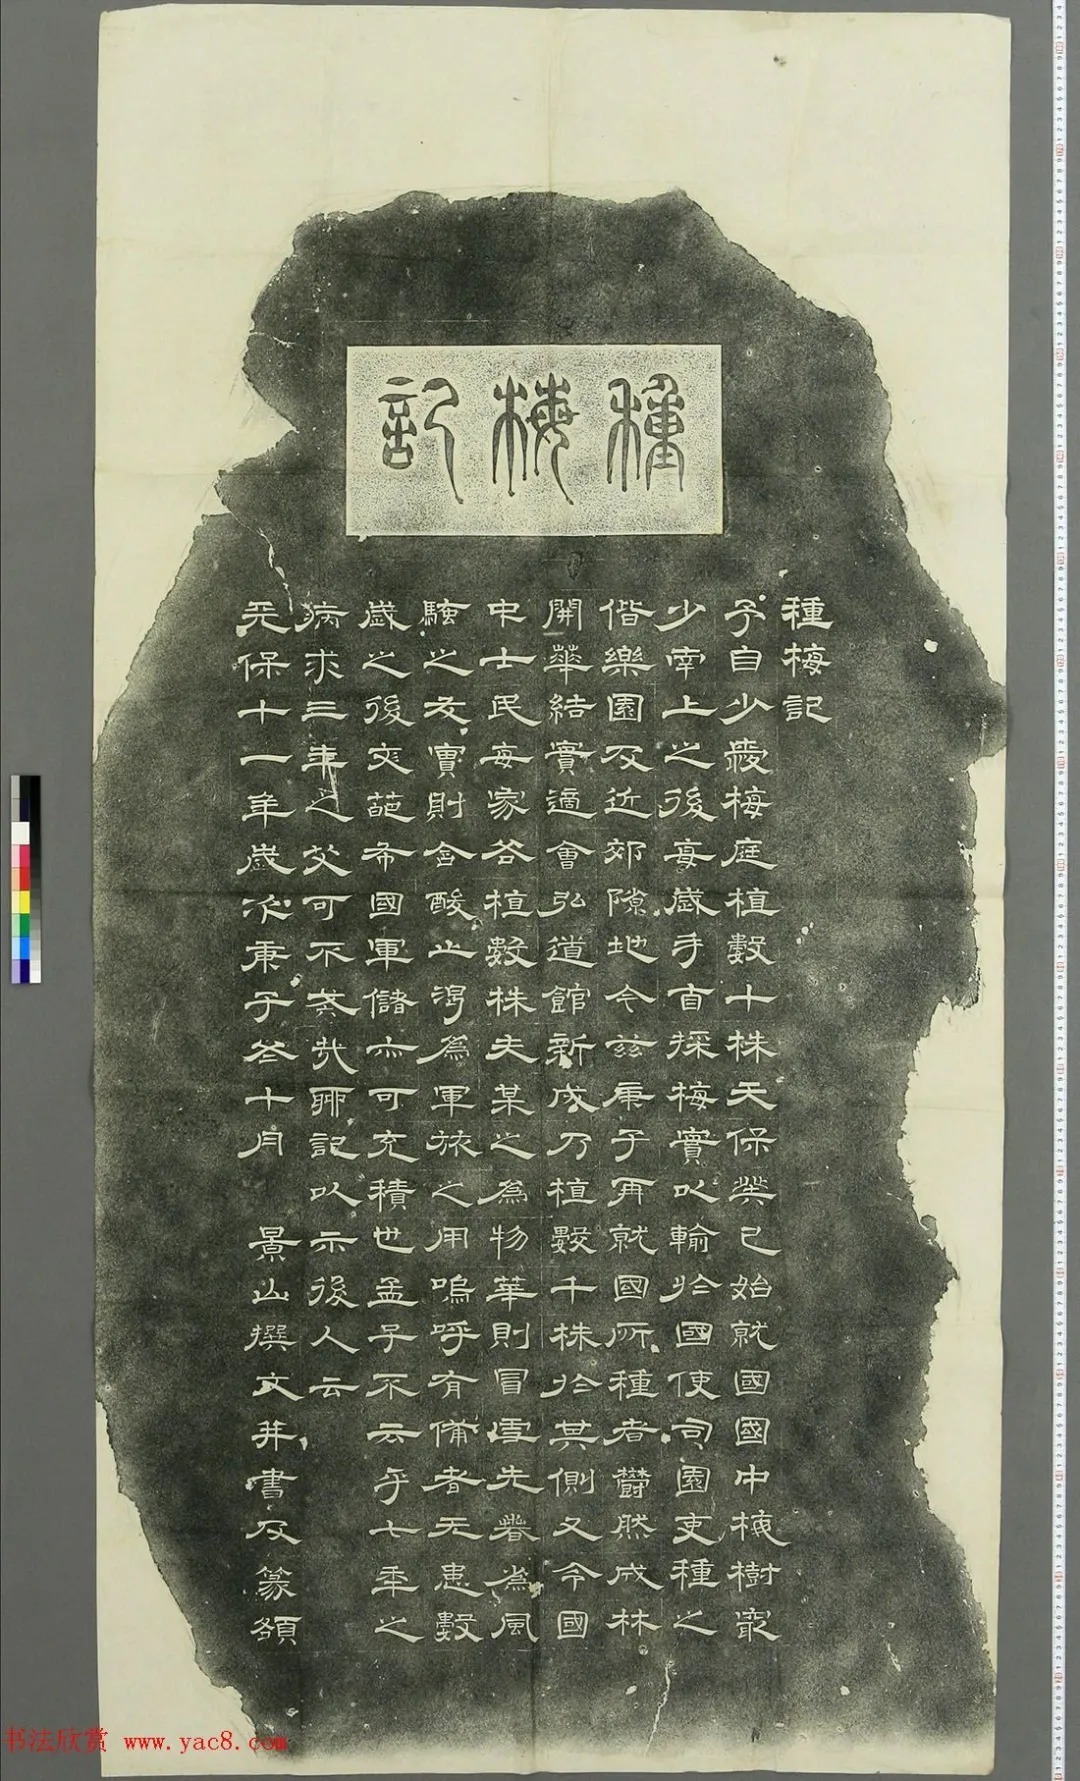 種梅記
種梅記
予自少愛梅庭植數十株天保癸巳始就國國中梅樹最
少南上之後每歲手自採梅實以輸於國使司園吏種之
偕樂園及近郊隙地今茲庚子再就國所種者鬱然成林
開華結實適會弘道館新成乃植數千株於其側又令國
中士民每家各植數株夫某之為物華則冒雪先春為風
騷之友實則含酸止渴為軍旅之用嗚呼有備者无患數
歲之後夾葩布國軍儲亦可充積也孟子不云乎七年之
病求三年之艾可不戒哉聊記以示後人云
天保十一年歲次庚子冬十月 景山撰文并書及篆額
书法欣赏 www.yac8.com